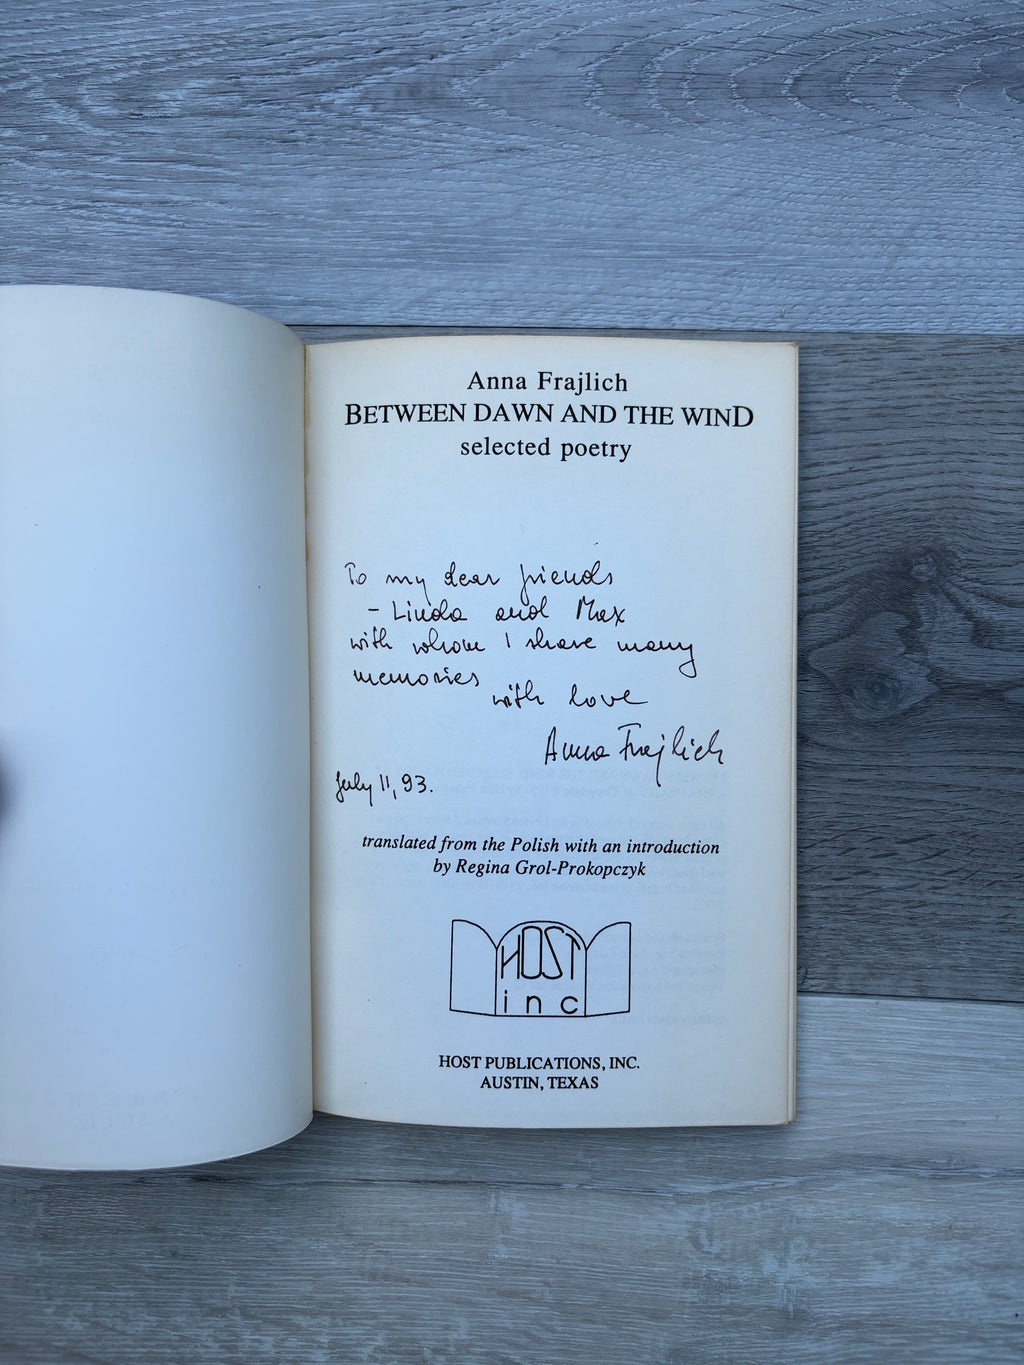 Anna Frajlich
BETWEEN DAWN AND THE WIND
selected poetry
To my dear friends
- Linda and Max
with whom I share many
memories
with love
Anna Frajlich
July 11, 93.
translated from the Polish with an introduction
by Regina Grol-Prokopczyk
HOST
inc
HOST PUBLICATIONS, INC.
AUSTIN, TEXAS